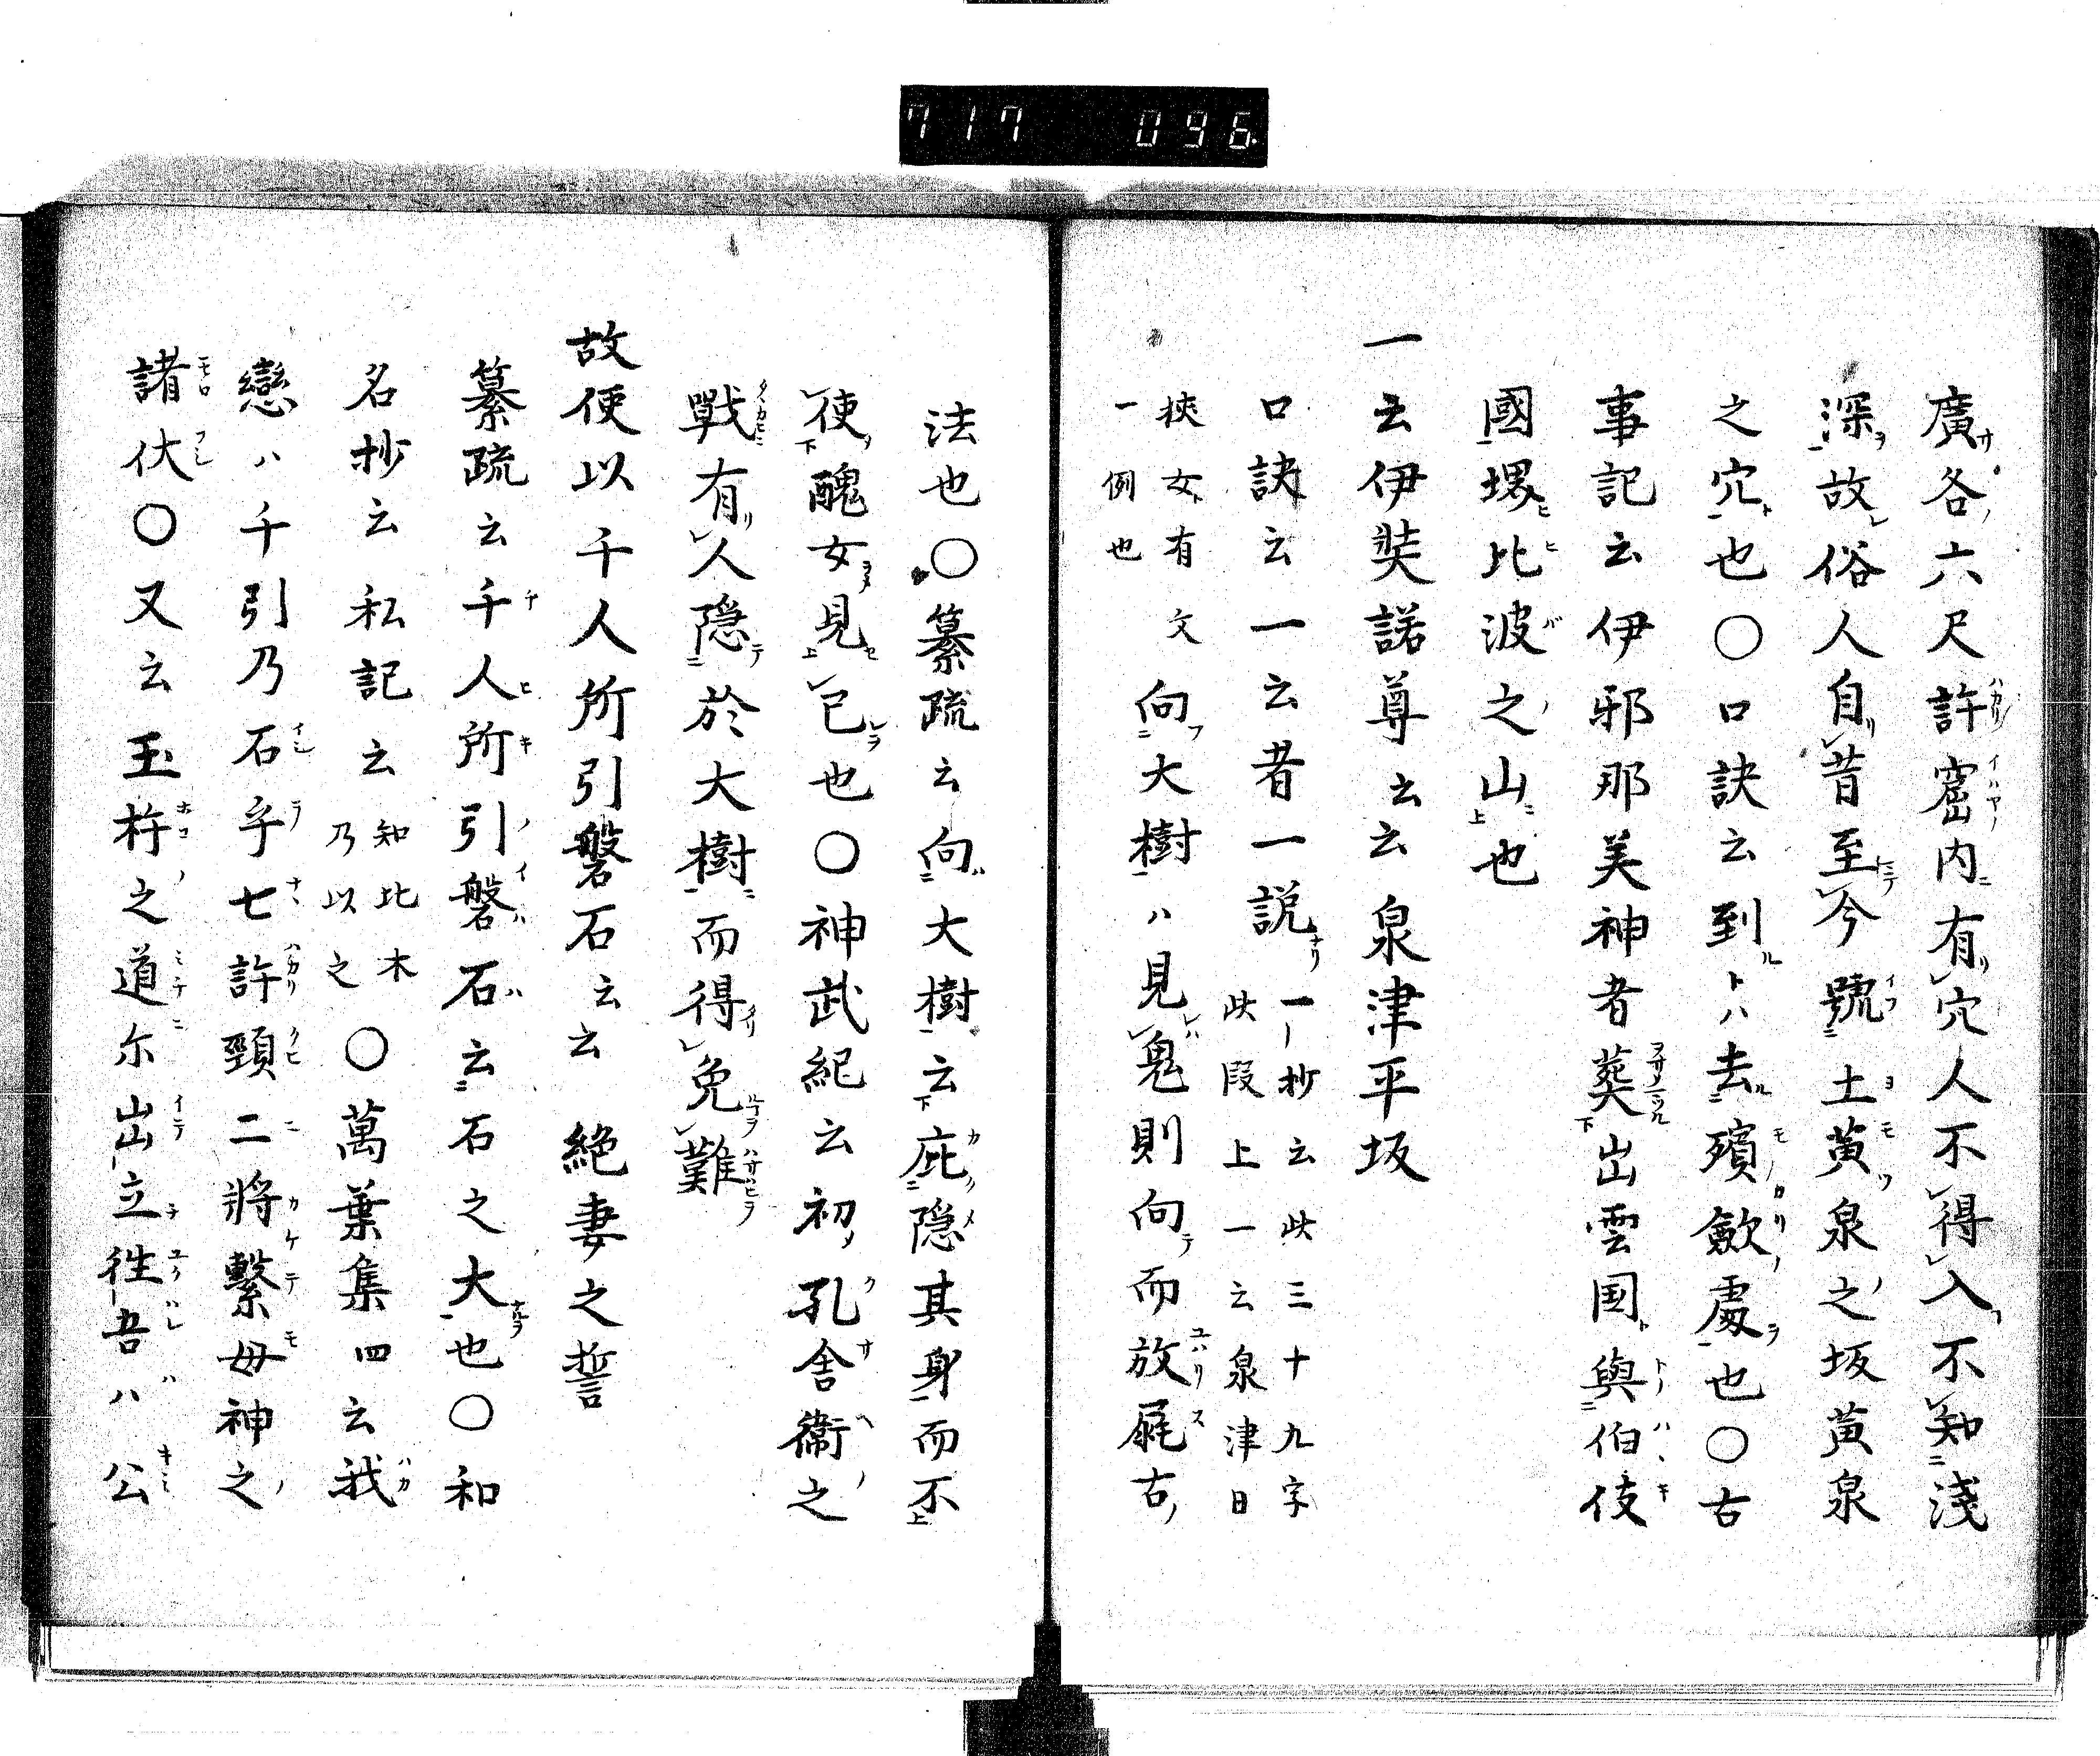 717 096
廣各六尺許窟内有穴人不得入不知淺
深故俗人自昔至今號土黄泉之坂黄泉
之穴也〇口訣云到トハ去殯斂處也〇古
事記云伊邪那美神者葬出雲国與伯伎
國堺比波之山也
一云伊奘諾尊云云泉津平坂
口訣云一云者一説
一抄云此三十九字
此段上一云泉津日
挾女有文
一例也
向大樹ハ見鬼則向而放𡱁古
法也〇纂疏云向大樹云庇隠其身而不
使醜女見已也〇神武紀云初孔舎衞之
戰有人隠於大樹而得免難
故便以千人所引磐石云云絶妻之誓
纂疏云千人所引磐石云石之大也〇和
名抄云私記云
知比木
乃以之
〇萬葉集四云我
戀ハ千引乃石乎七許頸二將繫母神之
諸伏〇又云玉桙之道尓出立徃吾ハ公